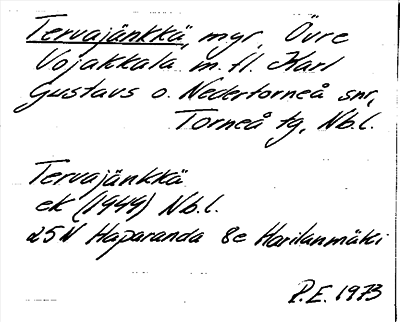 Tervajänkkä, mgr, Övre
Vojakkala m.fl. Karl
Gustavs o. Nedertorneå snr,
Torneå tg, Nb.l.
Tervajänkkä
ek (1949) Nb.l.
25N Haparanda 8e Harilanmäki
P.E. 1973